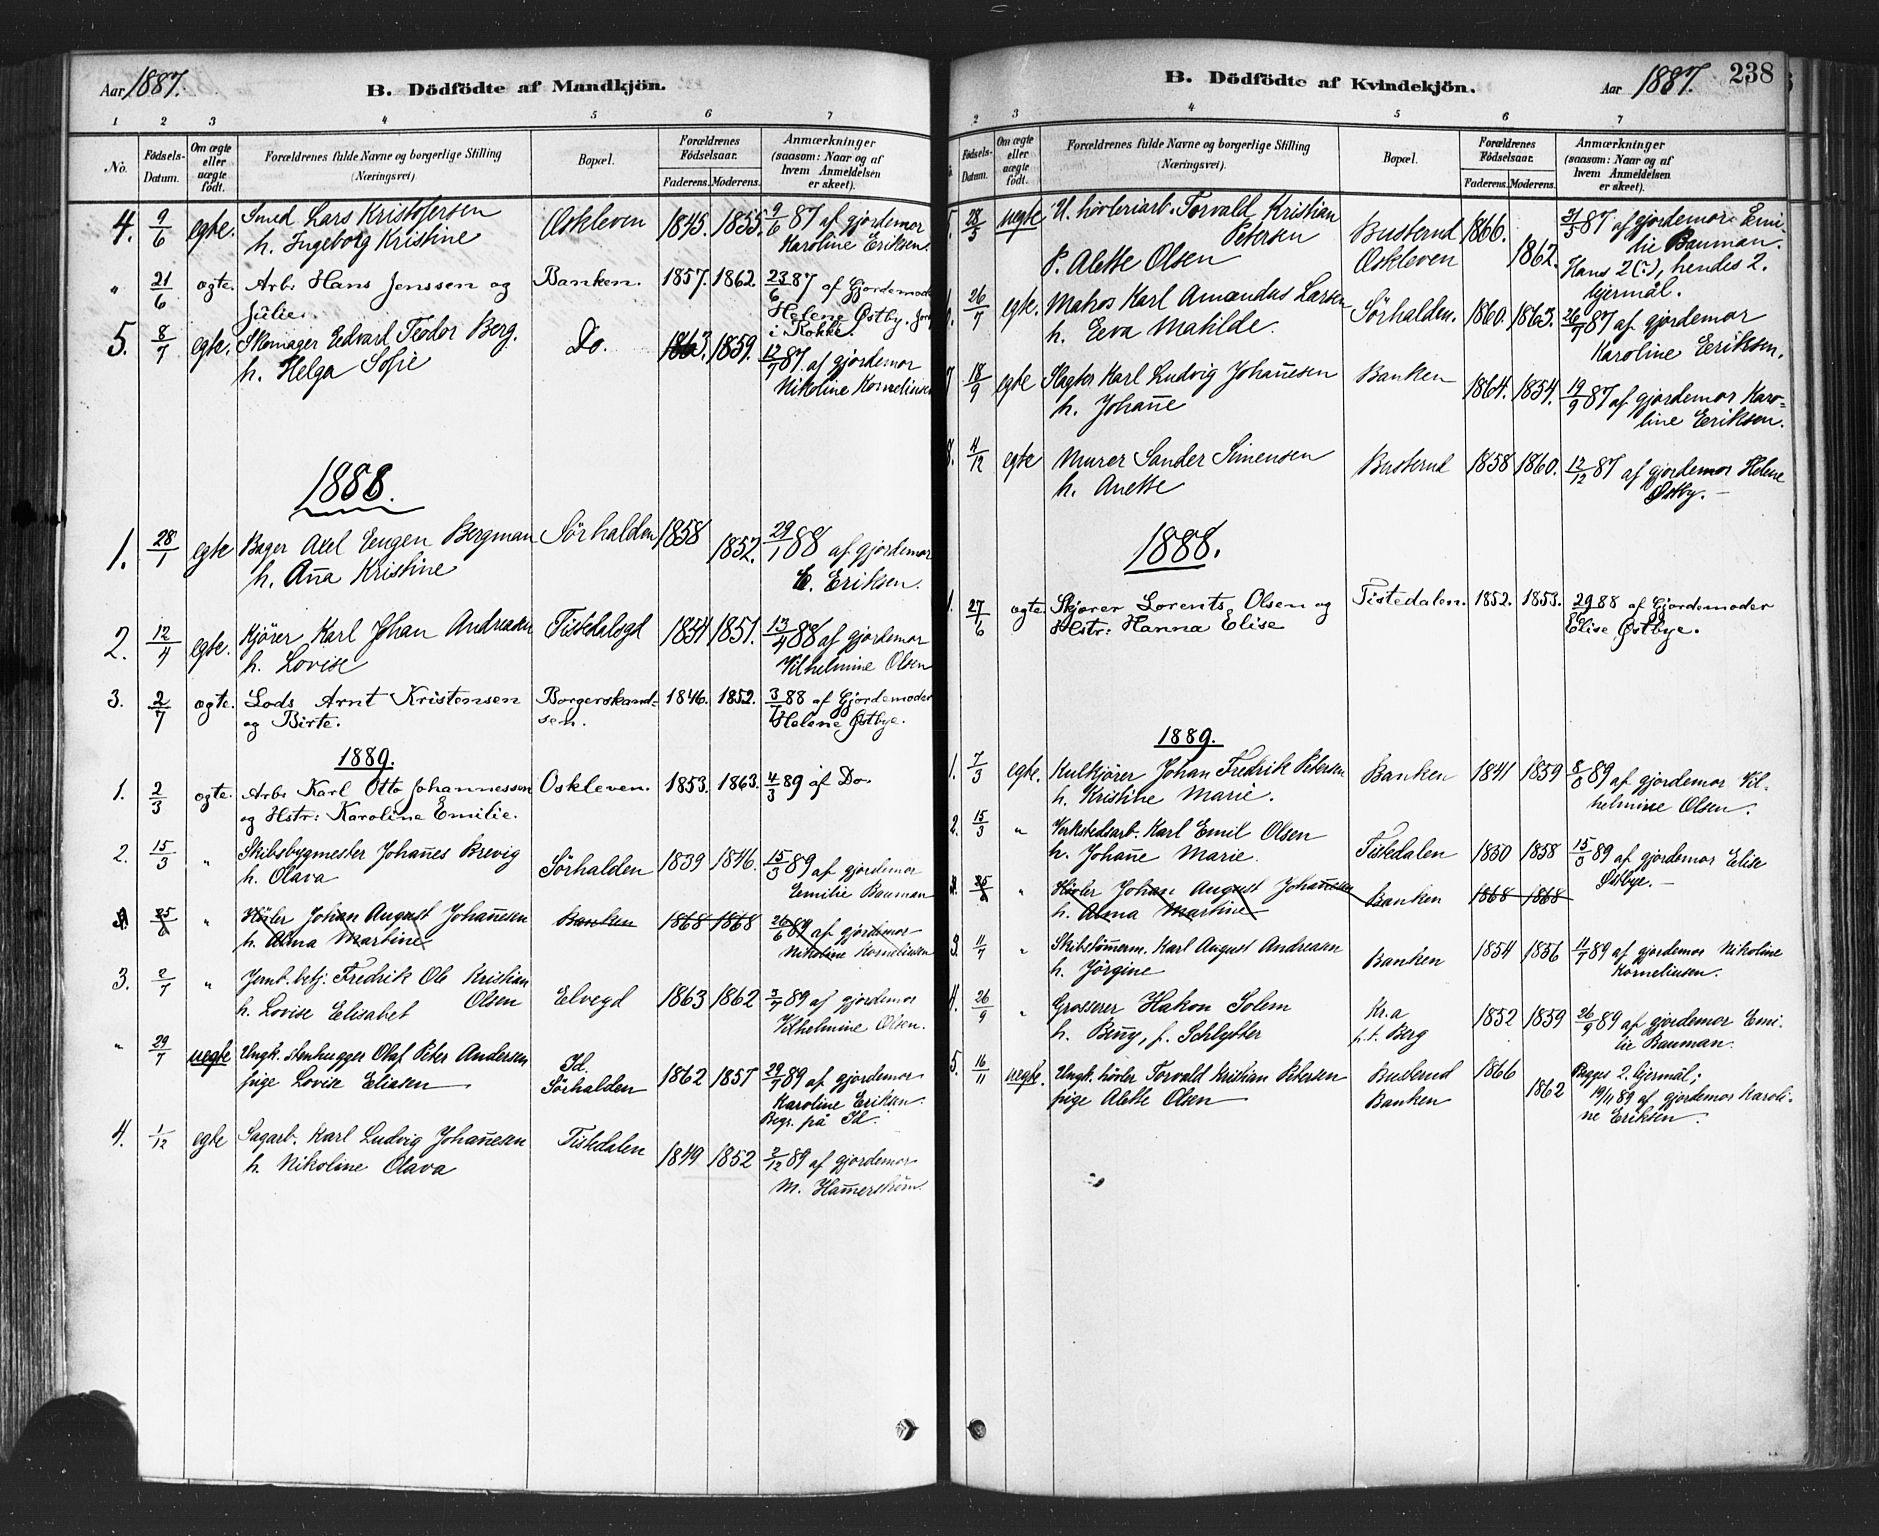 Aar 1887.
B. Dödfödte af Mandkjön.
1 2 3 4 5 6 7
No. Födsels-Datum. Om ægte eller uægte födt. Forældrenes fulde Navne og borgerlige Stilling (Næringsvei). Bopæl. Forældrenes Födselsaar. Faderens. Moderens. Anmærkninger (saasom: Naar og af hvem Anmeldelsen er skeet).
4. 9/6 egte. Smed Lars Kristofersen Oskleven 1845. 1855. 9/6 87 af gjordemor
h. Ingeborg Kristine Karoline Eriksen.
" 21/6 ogte. Arb. Hans Jenssen og Banken. 1857. 1862. 23/6 87 af Gjordemoder
Julie. Helene Østby.
i Rokke.
5. 8/7 egte. Skomager Edvard Teodor Berg. Do. 1863. 1859. 12/7 87 af gjordemor
h. Helga Sofie Nikoline Korneliusen
1888.
1. 28/1 egte Bager Axel Eugen Bergman Sörhalden 1858 1852. 29/1 88 af gjordemor
h. Aña Kristine E. Eriksen.
2. 12/4 egte. Kjörer Karl Johan Andreasen Tistedalsgd 1854 1851. 13/4 88 af gjordemor
h. Lovise Vilhelmine Olsen
3. 2/7 ogte. Lods Arnt Kristensen Borgerskand- 1846. 1852. 3/7 88 af Gjordemoder
og Birte. sen. Helene Østbye.
1889.
1. 2/3 ogte. Arb. Karl Otto Johannessen Oskleven. 1853. 1863. 4/3 89 af Do.
og Hstr: Karoline Emilie.
2. 15/3 " Skibsbygmester Johañes Brevig Sörhalden 1839 1846. 15/3 89 af gjordemor
h. Olava Emilie Bauman
3 25/6 " Hövler Johan August Johañesen Banken 1868 1868 26/6 89 af gjordemor
h. Alma Martine Nikoline Korneliusen
3. 2/7 " Jernb. betj. Fredrik Ole Kristian Elvegd 1863 1862 3/7 89 af gjordemor
h. Lovise Elisabet Olsen Vilhelmine Olsen.
" 29/7 uegte Ungk. stenhugger Olaf Peter Andersen Id. 1862 1857 29/7 89 af gjordemor
pige Lovise Eliasen Sörhalden Karoline Eriksen.
Begr. på Id.
4. 1/12 egte Sagarb. Karl Ludvig Johañesen Tistedalen 1849 1852 2/12 89 af gjordemor
h. Nikoline Olava M. Hamerström
B. Dödfödte af Kvindekjön.
Aar 1887. 238
2 3 4 5 6 7
Födsels-Datum. Om ægte eller uægte födt. Forældrenes fulde Navne og borgerlige Stilling (Næringsvei). Bopæl. Forældrenes Födselsaar. Faderens. Moderens. Anmærkninger (saasom: Naar og af hvem Anmeldelsen er skeet).
5. 28/3 uegte U. hövleriarb. Torvald Kristian Busterud 1866. 31/3 87 af gjordemor Emi-
Petersen lie Bauman.
P. Alette Olsen Oskleven 1862. Hans 2(?), hendes 2.
lejermål.
26/7 egte. Matros Karl Amandus Larsen Sörhalden. 1860. 1863. 26/7 87 af gjordemor
h. Eva Matilde. Karoline Eriksen.
7 18/9 egte Slagter Karl Ludvig Johañesen Banken 1864. 1854. 19/9 87 af gjordemor Karo-
h. Johañe line Eriksen.
8. 11/12 egte Murer Sander Simensen Busterud 1858 1860. 12/12 87 af gjordemor Helene
h. Anette Østby.
1888.
1. 27/6 ogte. Skjörer Lorents Olsen og Tistedalen. 1852. 1853. 29/6 88 af Gjordemoder
Hstr: Hanna Elise Elise Østbye.
1889.
1. 7/3 egte. Kulkjörer Johan Fredrik Petersen Banken 1841 1859 8/3 89 af gjordemor Vil-
h. Kristine Marie. helmine Olsen.
2. 15/3 " Verkstedsarb. Karl Emil Olsen Tistedalen 1850 1858 15/3 89 af gjordemor Elise
h. Johañe Marie. Østbye.
3. 25/6 " Hövler Johan August Johañesen Banken 1868 1868
h. Alma Martine
3. 11/7 " Skibstömerm. Karl August Andreasen Banken 1854 1856 11/7 89 af gjordemor Nikoline
h. Jörgine Korneliusen.
4. 26/9 " Grosserer Hakon Solem Kr.a 1852 1859 26/9 89 af gjordemor Emi-
h. Beñy, f. Schlytter p.t. Berg lie Bauman.
5. 16/11 uegte. Ungk. hövler Torvald Kristian Petersen Busterud 1866 Begges 2. lejermål;
pige Alette Olsen Banken 1862 19/11 89 af gjordemor Karoli-
ne Eriksen.